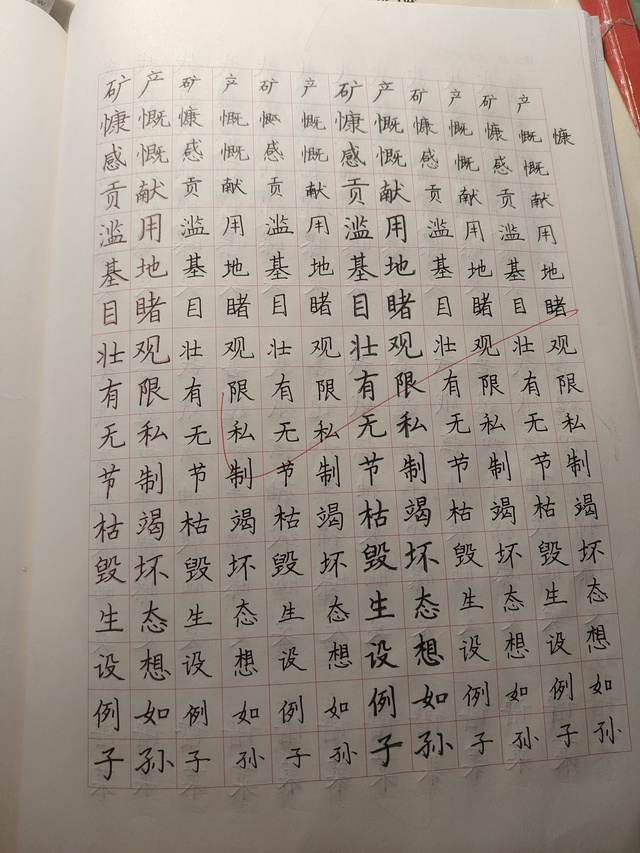 矿产矿产矿产矿产矿产矿产
慷慨慷慨慷慨慷慨慷慨慷慨慷
感慨感慨感慨感慨感慨感慨
贡献贡献贡献贡献贡献贡献
滥用滥用滥用滥用滥用滥用
基地基地基地基地基地基地
目睹目睹目睹目睹目睹目睹
壮观壮观壮观壮观壮观壮观
有限有限有限有限有限有限
无私无私无私无私无私无私
节制节制节制节制节制节制
枯竭枯竭枯竭枯竭枯竭枯竭
毁坏毁坏毁坏毁坏毁坏毁坏
生态生态生态生态生态生态
设想设想设想设想设想设想
例如例如例如例如例如例如
子孙子孙子孙子孙子孙子孙